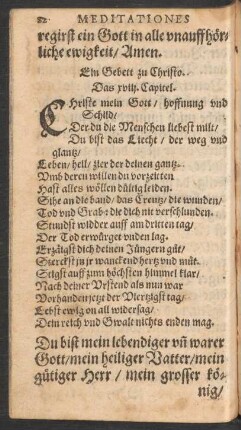 82 MEDITATIONES
regirst ein Gott in alle vnauffhör-
liche ewigkeit/ Amen.
Ein Gebett zu Christo.
Das xviij. Capitel.
CHriste mein Gott/ hoffnung vnd
Schild/
Der du die Menschen liebest milt/
Du bist das Liecht/ der weg vnd
glantz/
Leben/ heil/ zier der deinen gantz.
Vmb deren willen du vorzeitten
Hast alles wöllen dültig leiden.
Sihe an die band/ das Creutz/ die wunden/
Tod vnd Grab: die dich nit verschlunden.
Stundst widder auff am dritten tag/
Der Tod erwürget vnden lag.
Erzäigst dich deinen Jüngern gůt/
Sterckst in jr wanckend hertz vnd můt.
Stigst auff zum höchsten himmel klar/
Nach deiner Vrstend als nun war
Vorhanden jetz der Viertzigst tag/
Lebst ewig on all widersag/
Dein reich vnd Gwalt nichts enden mag.
Du bist mein lebendiger vñ warer
Gott/ mein heiliger Vatter/ mein
gütiger Herr/ mein grosser kö-
nig/